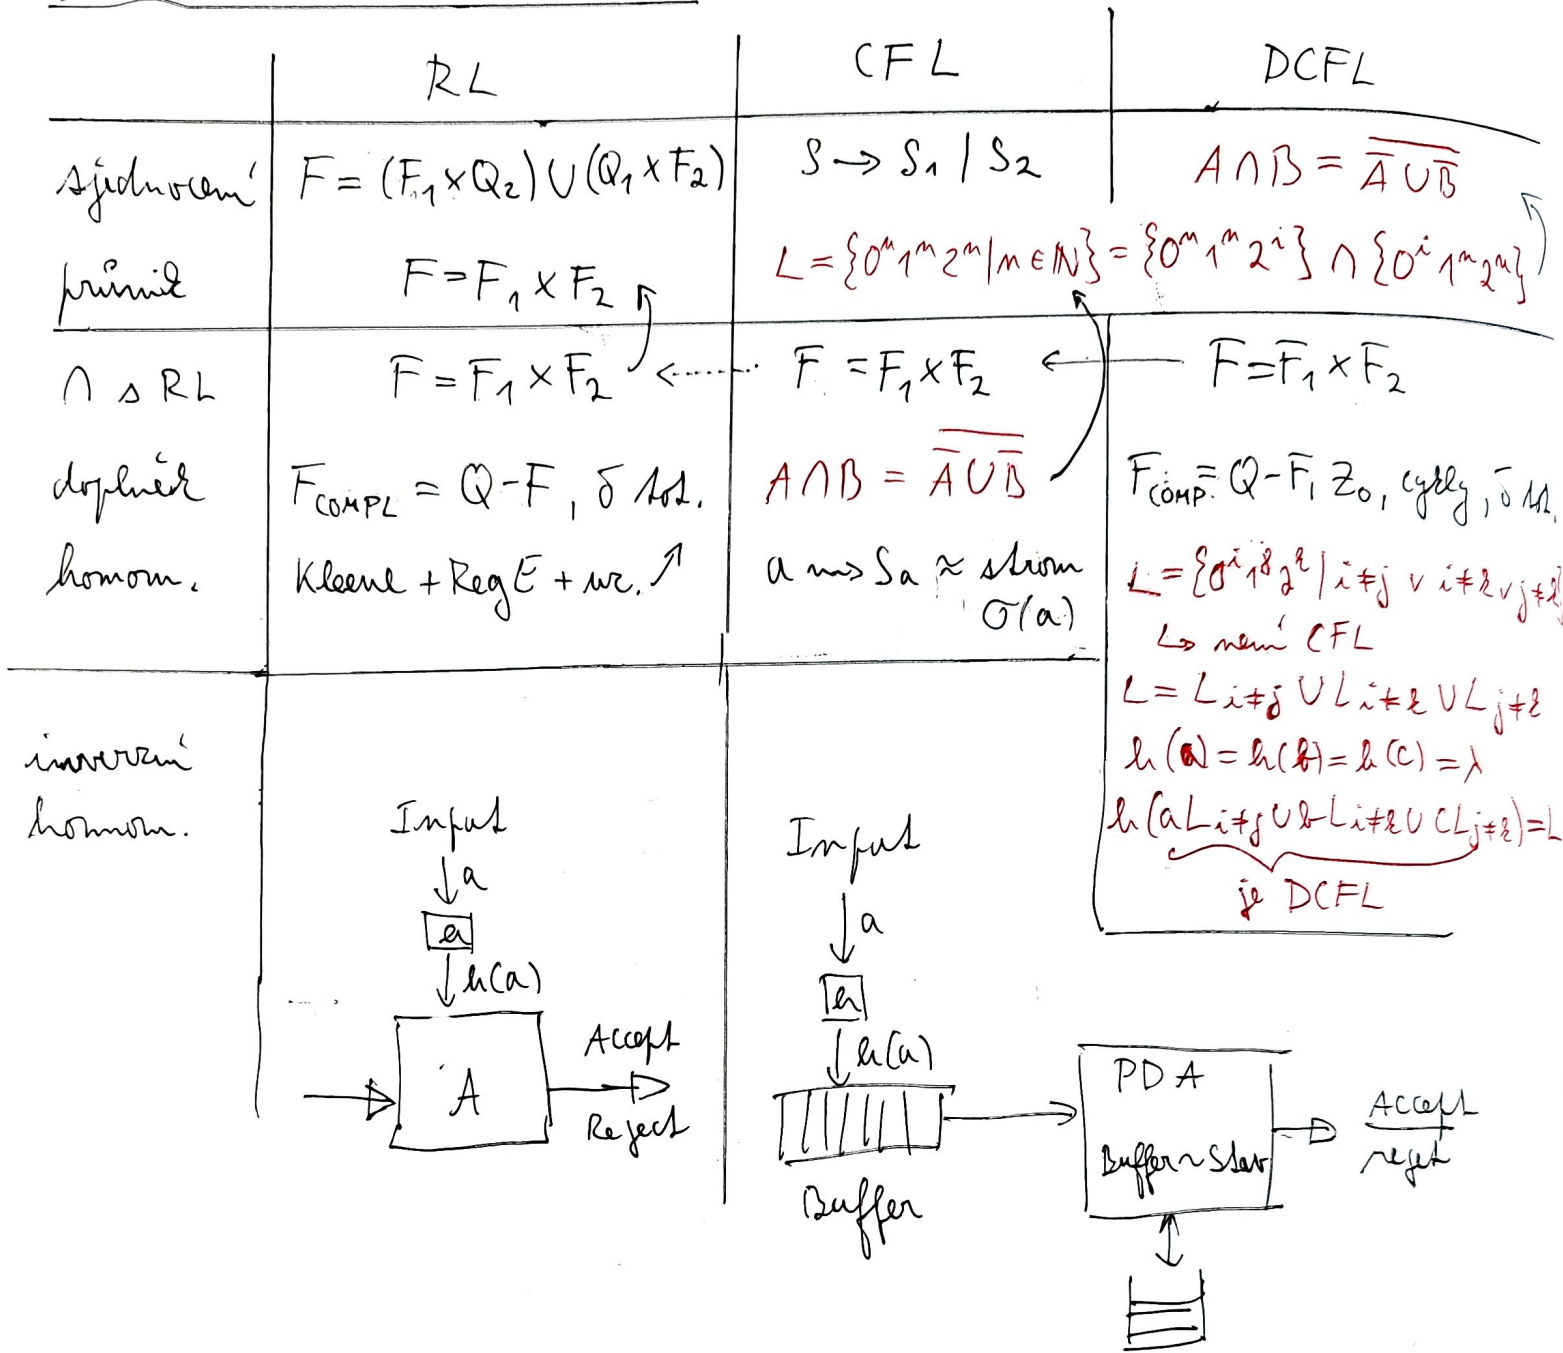 RL CFL DCFL
sjednocení F = (F₁ × Q₂) ∪ (Q₁ × F₂) S → S₁ / S₂ A ∩ B = \overline{\overline{A} ∪ \overline{B}}
průnik F = F₁ × F₂ L = {0ⁿ1ⁿ2ⁿ | n ∈ ℕ} = {0ⁿ1ⁿ2ⁱ} ∩ {0ⁱ1ⁿ2ⁿ}
∩ s RL F = F₁ × F₂ F = F₁ × F₂ F = F₁ × F₂
doplněk F_COMPL = Q - F, δ tot. A ∩ B = \overline{\overline{A} ∪ \overline{B}} F_COMP. = Q - F, Z₀, cykly, δ tot.
homom. Kleene + RegE + uz. ↗ a ⇝ Sₐ ≈ strom
σ(a)
L = {0ⁱ1ʲ2ᵏ | i≠j ∨ i≠k ∨ j≠k}
↳ není CFL
L = L_{i≠j} ∪ L_{i≠k} ∪ L_{j≠k}
h(a) = h(b) = h(c) = λ
h(aL_{i≠j} ∪ bL_{i≠k} ∪ cL_{j≠k}) = L
je DCFL
inverzní
homom.
Input
a
h
h(a)
A
Accept
Reject
Input
a
h
h(a)
Buffer
PDA
Buffer ~ Stav
Accept
reject